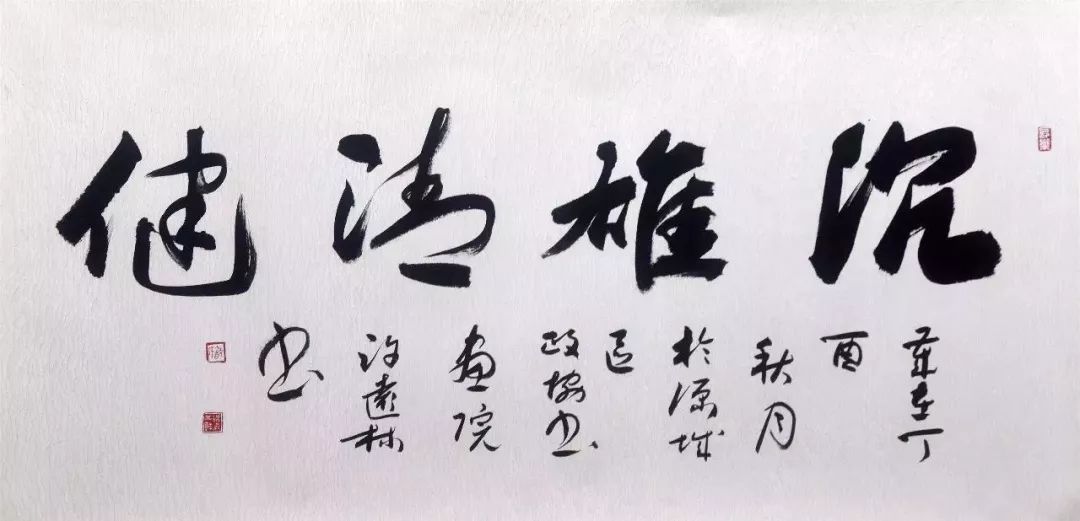 沉雄清健
歲在丁
酉
秋月
於源城
区
政协书
畫院
许遠林
书